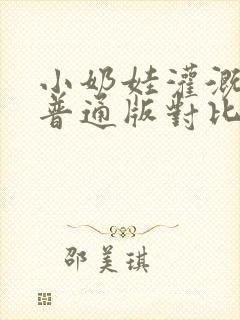 小奶娃灌溉
普通版對比
邵美琪